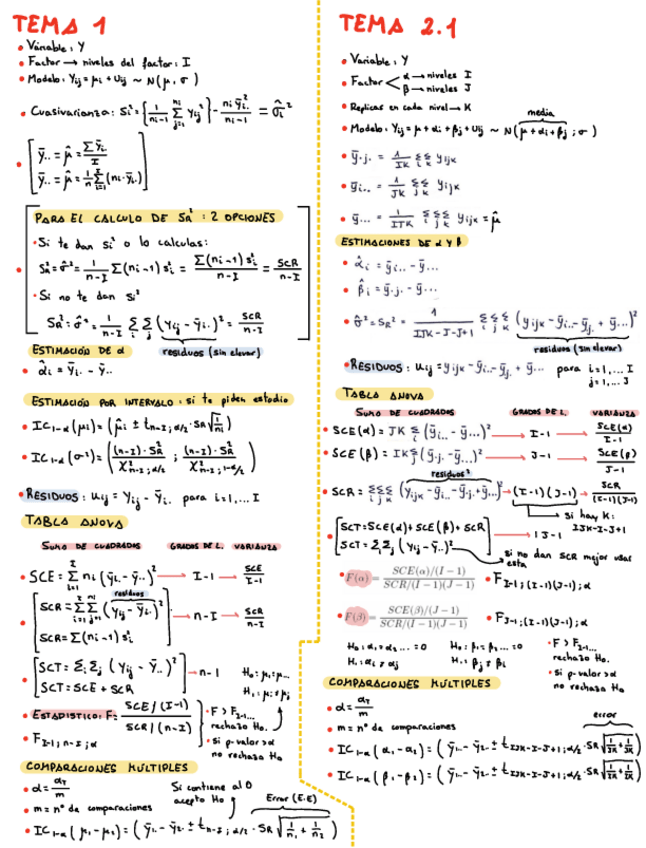 TEMA 1
• Variable: Y
• Factor → niveles del factor: I
• Modelo: Yij = μi + Uij ~ N(μ, σ)
• Cuasivarianza: Si² = { 1/(ni-1) Σ(j=1, ni) Yij² } - ni ȳi.²/(ni-1) = σ̂i²
• [ ȳ.. = μ̂ = Σ ȳi. / I
ȳ.. = μ̂ = 1/n Σ(i=1) (ni · ȳi.) ]
PARA EL CALCULO DE SR²: 2 OPCIONES
• Si te dan si² o lo calculas:
SR² = σ̂² = 1/(n-I) Σ(ni-1) si² = Σ(ni-1) si² / (n-I) = SCR/(n-I)
• Si no te dan si²
SR² = σ̂² = 1/(n-I) Σi Σj (Yij - ȳi.)² = SCR/(n-I)
residuos (sin elevar)
ESTIMACIÓN DE α
• α̂i = ȳi. - ȳ..
ESTIMACIÓN POR INTERVALO: si te piden estudio
• IC1-α(μi) = (μ̂i ± tn-I; α/2 · SR √(1/ni))
• IC1-α(σ²) = ( (n-I)·SR² / χ²n-I; α/2 ; (n-I)·SR² / χ²n-I; 1-α/2 )
• RESIDUOS: uij = Yij - ȳi. para i=1,... I
TABLA ANOVA
SUMA DE CUADRADOS GRADOS DE L. VARIANZA
• SCE = Σ(i=1, I) ni (ȳi. - ȳ..)² → I-1 → SCE/(I-1)
residuos
• [ SCR = Σ(i=1, I) Σ(j=1, ni) (Yij - ȳi.)²
SCR = Σ(ni-1) si² ] → n-I → SCR/(n-I)
• [ SCT = Σi Σj (Yij - ȳ..)²
SCT = SCE + SCR ] → n-1
H0: μ1 = μ...
H1: μi ≠ μj
• ESTADISTICO: F = SCE/(I-1) / SCR/(n-I)
• F I-1; n-I; α
• F > F I-1...
rechazo H0.
• si p-valor > α
no rechazo H0
COMPARACIONES MÚLTIPLES
• α = αT/m
• m = nº de comparaciones
Si contiene al 0
acepto H0
Error (E.E)
• IC1-α(μ1 - μ2) = (ȳ1. - ȳ2. ± tn-I; α/2 · SR √(1/n1 + 1/n2))
TEMA 2.1
• Variable: Y
• Factor < α → niveles I
β → niveles J
• Replicas en cada nivel → K
media
• Modelo: Yij = μ + αi + βj + Uij ~ N(μ + αi + βj ; σ)
• ȳ.j. = 1/IK Σi Σk yijk
• ȳi.. = 1/JK Σj Σk yijk
• ȳ... = 1/IJK Σi Σj Σk yijk = μ̂
ESTIMACIONES DE α Y β
• α̂i = ȳi.. - ȳ...
• β̂j = ȳ.j. - ȳ...
• σ̂² = SR² = 1/(IJK-I-J+1) Σi Σj Σk (yijk - ȳi.. - ȳ.j. + ȳ...)²
residuos (sin elevar)
• RESIDUOS: uij = yijk - ȳi.. - ȳ.j. + ȳ... para i=1,... I
j=1,... J
TABLA ANOVA
SUMA DE CUADRADOS GRADOS DE L. VARIANZA
• SCE(α) = JK Σi (ȳi.. - ȳ...)² → I-1 → SCE(α)/(I-1)
• SCE(β) = IK Σj (ȳ.j. - ȳ...)² → J-1 → SCE(β)/(J-1)
residuos²
• SCR = Σi Σj Σk (yijk - ȳi.. - ȳ.j. + ȳ...)² → (I-1)(J-1) → SCR/(I-1)(J-1)
Si hay K:
IJK-I-J+1
• [ SCT = SCE(α) + SCE(β) + SCR
SCT = Σi Σj (Yij - ȳ..)² ] → IJ-1
si no dan SCR mejor usar
esta
• F(α) = SCE(α)/(I - 1) / SCR/(I - 1)(J - 1) • F I-1; (I-1)(J-1); α
• F(β) = SCE(β)/(J - 1) / SCR/(I - 1)(J - 1) • F J-1; (I-1)(J-1); α
H0: α1 = α2 ... = 0 H0: β1 = β2 ... = 0
H1: αi ≠ αj H1: βj ≠ βi
• F > F I-1...
rechazo H0.
• si p-valor > α
no rechazo H0
COMPARACIONES MÚLTIPLES
• α = αT/m
• m = nº de comparaciones
error
• IC1-α(α1 - α2) = (ȳ1.. - ȳ2.. ± t IJK-I-J+1; α/2 · SR √(1/JK + 1/JK))
• IC1-α(β1 - β2) = (ȳ1.. - ȳ2.. ± t IJK-I-J+1; α/2 · SR √(1/IK + 1/IK))